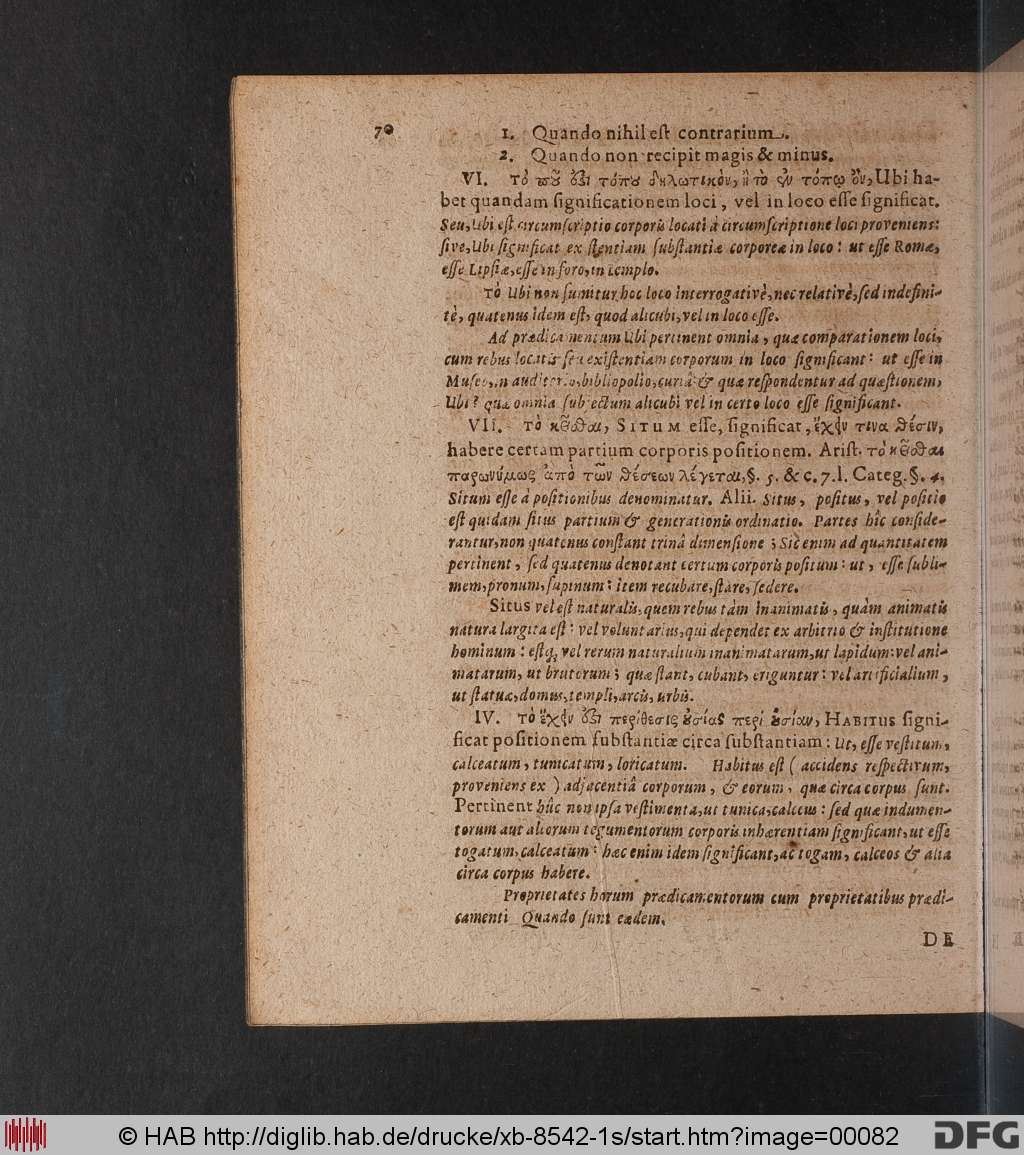 70
1. Quando nihil est contrarium.
2. Quando non recipit magis & minus.
VI. τὸ ποῦ ἐστι τόπου δηλωτικὸν, ἢ τὸ ἐν τόπῳ ὂν, Ubi ha-
bet quandam significationem loci, vel in loco esse significat.
Seu, Ubi est circumscriptio corporis locati à circumscriptione loci proveniens:
sive, Ubi significat existentiam substantiæ corporeæ in loco: ut esse Romæ,
esse Lipsiæ, esse in foro, in templo.
τὸ Ubi non sumitur hoc loco interrogativè, nec relativè, sed indefini-
tè, quatenus idem est, quod alicubi, vel in loco esse.
Ad prædicamentum Ubi pertinent omnia, quæ comparationem loci,
cum rebus locatis seu existentiam corporum in loco significant: ut esse in
Museo, in auditorio, bibliopolio, curiâ: & quæ respondentur ad quæstionem,
Ubi? quæ omnia subjectum alicubi vel in certo loco esse significant.
VII. τὸ κεῖσθαι, SITUM esse, significat, ἔχειν τινα θέσιν,
habere certam partium corporis positionem. Arist. τὸ κεῖσθαι
παρωνύμως ἀπὸ τῶν θέσεων λέγεται, §. 5. & c. 7. l. Categ. §. 4.
Situm esse à positionibus denominatur. Alii. Situs, positus, vel positio
est quidam situs partium & generationis ordinatio. Partes hîc conside-
rantur, non quatenus constant trinâ dimensione; Sic enim ad quantitatem
pertinent, sed quatenus denotant certum corporis positum: ut, esse subli-
mem, pronum, supinum: item recubare, stare, sedere.
Situs vel est naturalis, quem rebus tàm inanimatis, quàm animatis
natura largita est: vel voluntarius, qui dependet ex arbitrio & institutione
hominum: estq; vel rerum naturalium inanimatarum, ut lapidum: vel ani-
matarum, ut brutorum; quæ stant, cubant, eriguntur: vel artificialium,
ut statuæ, domus, templi, arcis, urbis.
IV. τὸ ἔχειν ἐστι περίθεσις οὐσίας περὶ οὐσίαν, HABITUS signi-
ficat positionem substantiæ circa substantiam: Ut, esse vestitum,
calceatum, tunicatum, loricatum. Habitus est ( accidens respectivum,
proveniens ex ) adjacentiâ corporum, & eorum, quæ circa corpus sunt.
Pertinent hûc non ipsa vestimenta, ut tunica, calceus: sed quæ indumen-
torum aut aliorum tegumentorum corporis inhærentiam significant, ut esse
togatum, calceatum: hæc enim idem significant, ac togam, calceos & alia
circa corpus habere.
Proprietates horum prædicamentorum cum proprietatibus prædi-
camenti Quando sunt eædem.
DE
© HAB http://diglib.hab.de/drucke/xb-8542-1s/start.htm?image=00082
DFG